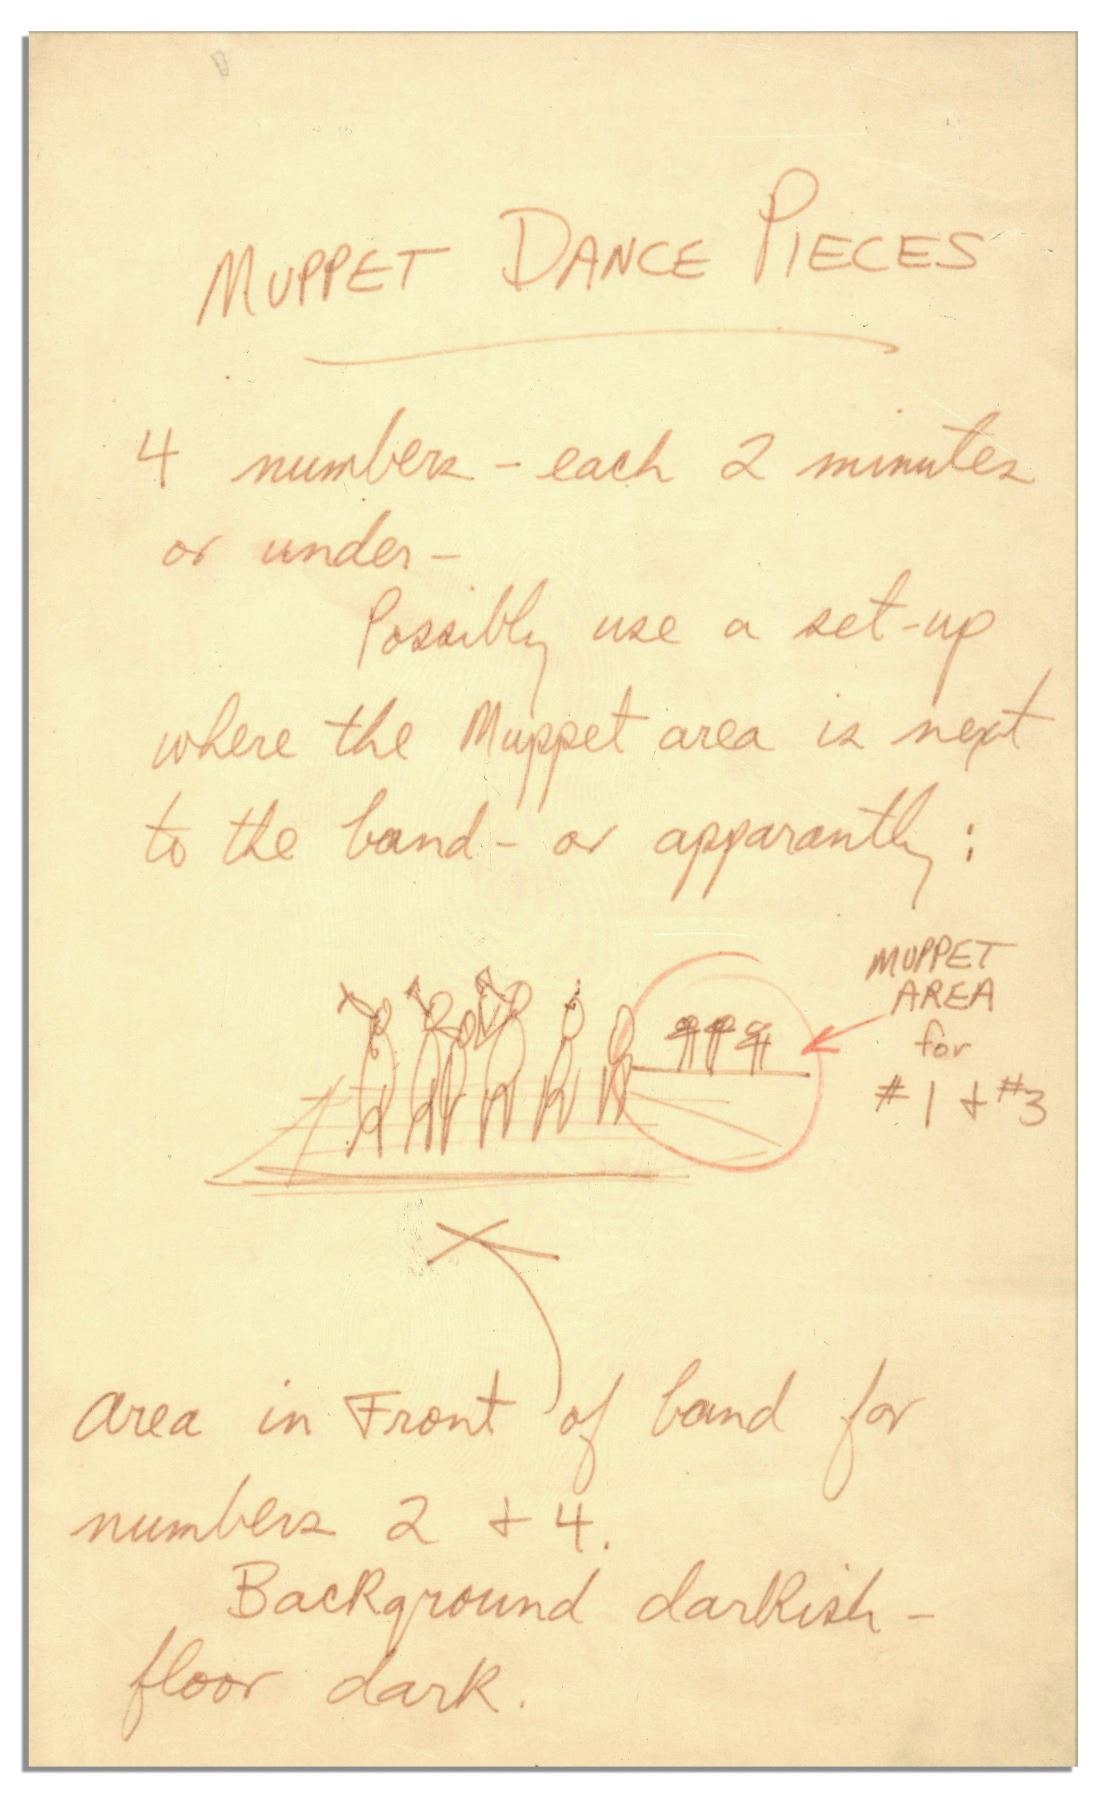 MUPPET DANCE PIECES
4 numbers - each 2 minutes
or under -
Possibly use a set-up
where the Muppet area is next
to the band - or apparantly :
MUPPET
AREA
for
#1 + #3
area in Front of band for
numbers 2 + 4.
Background darkish -
floor dark.